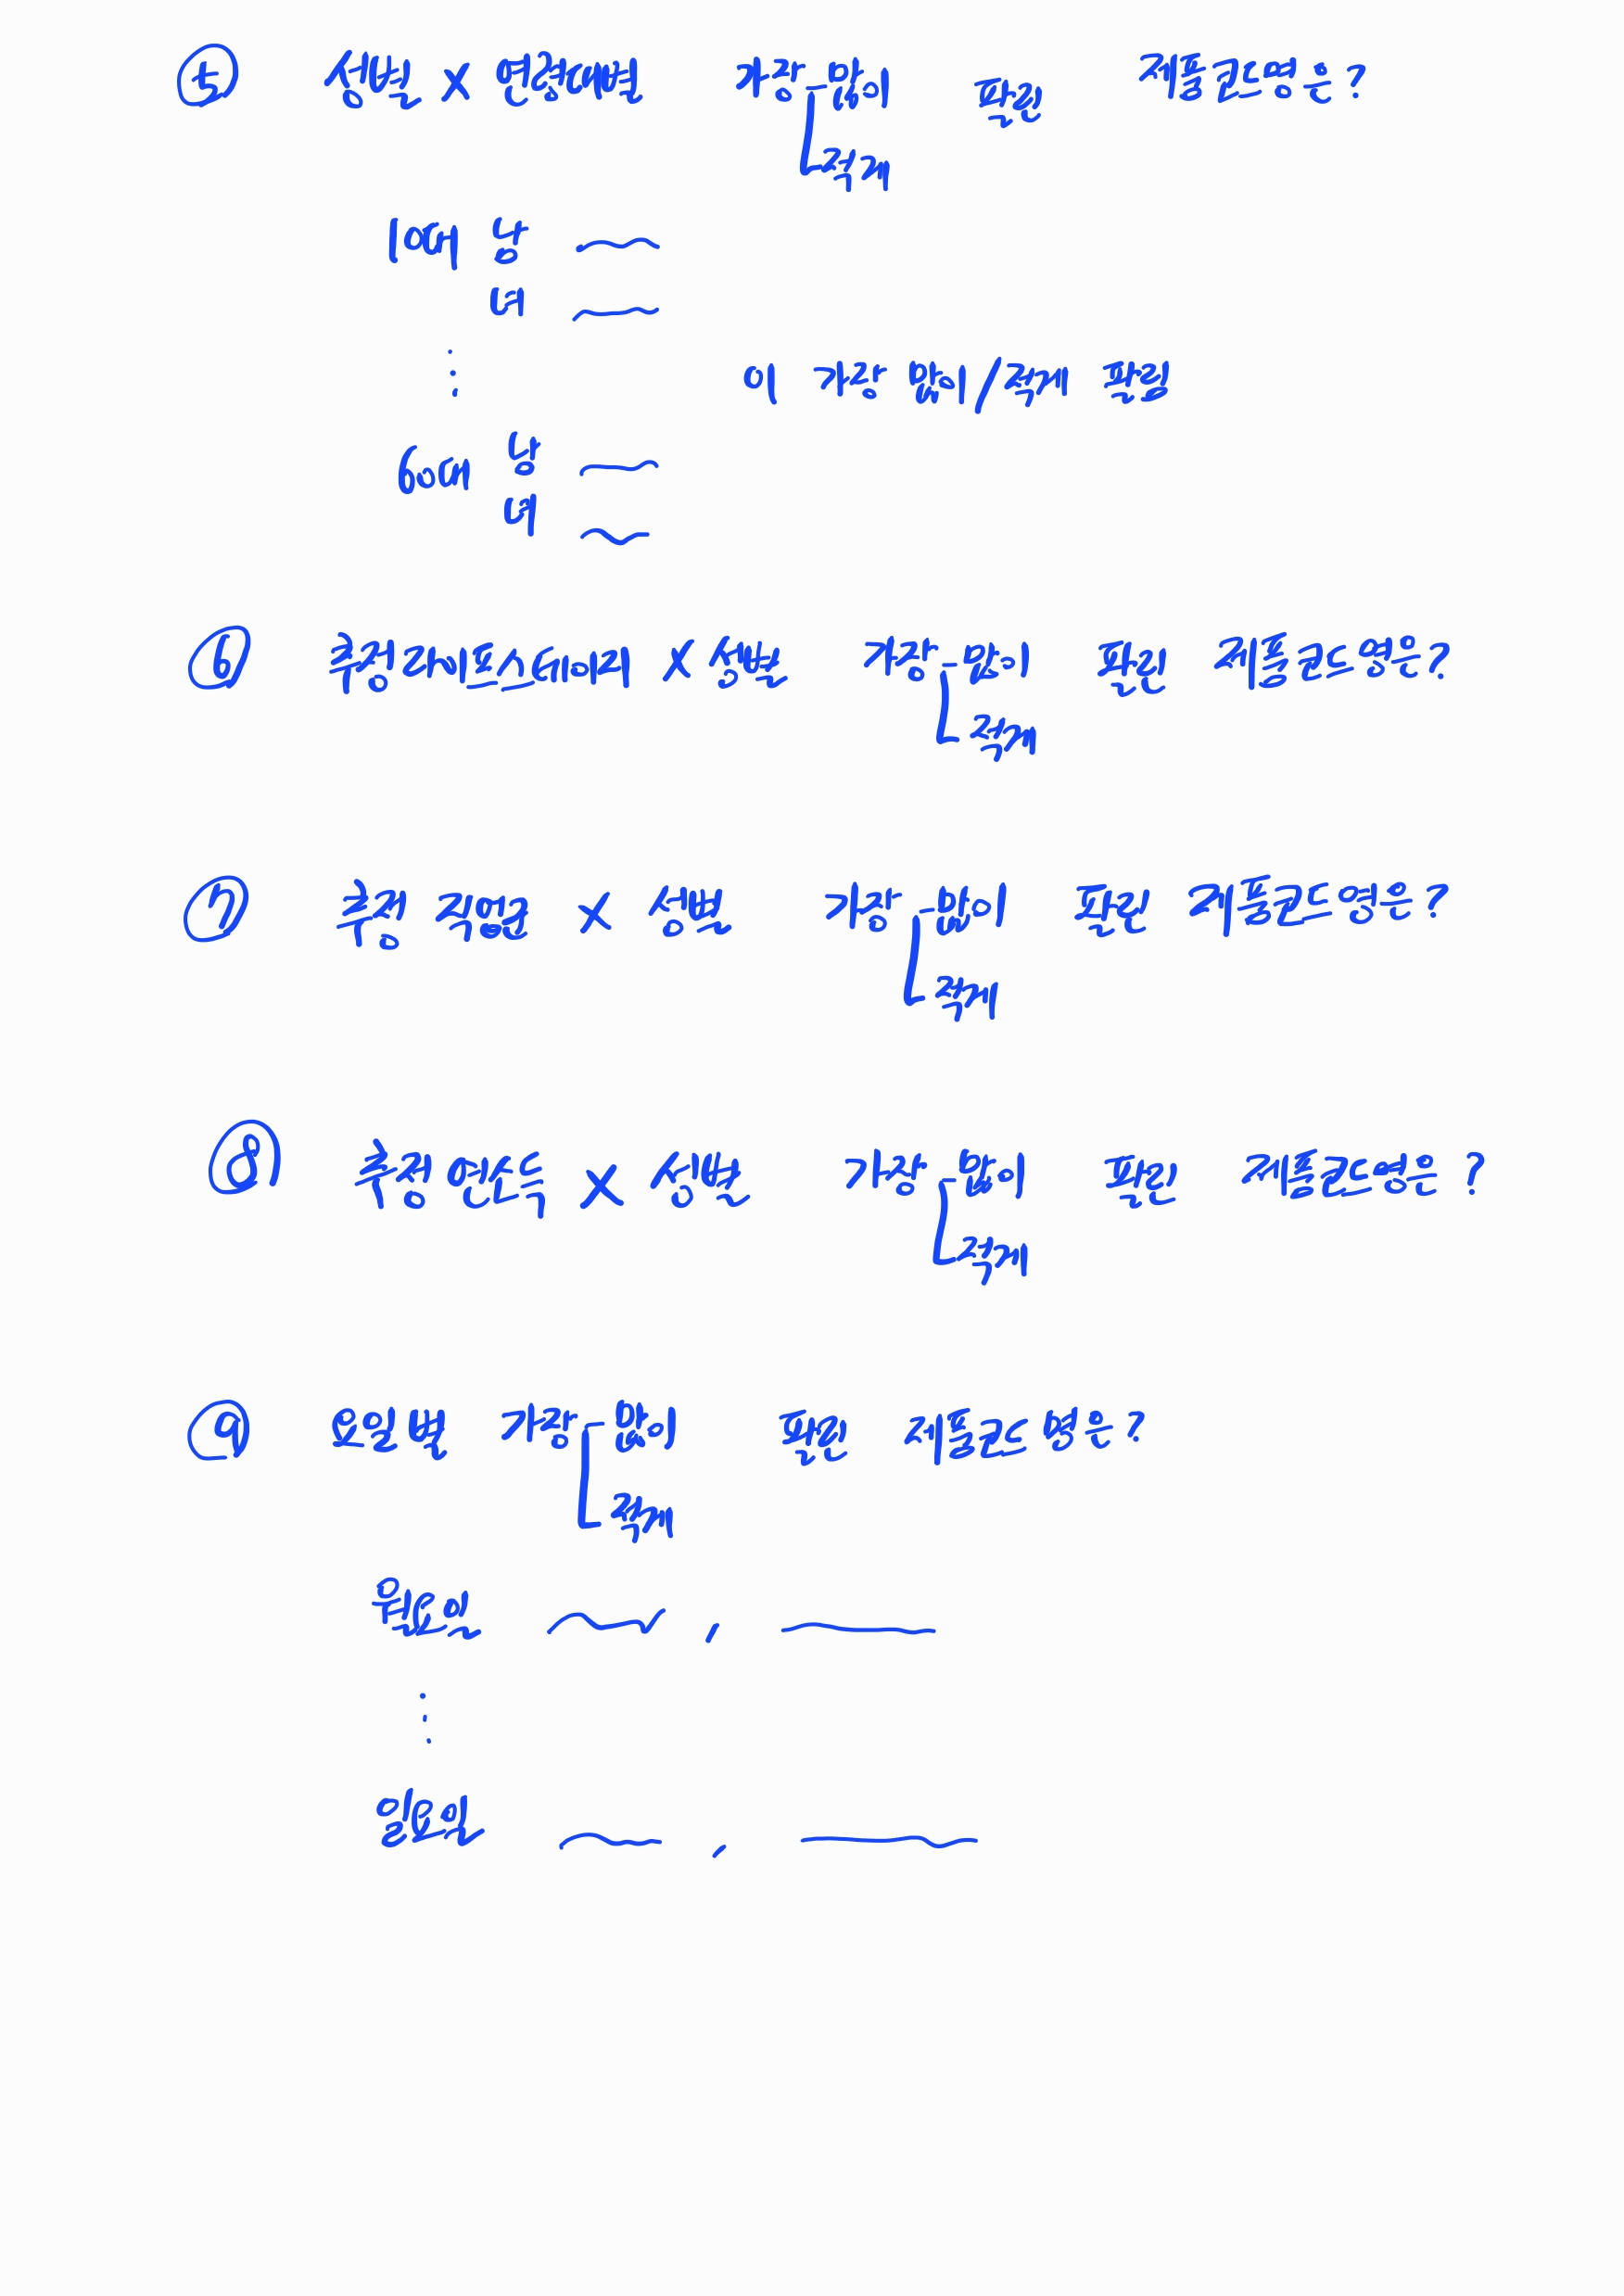 ⑤ 성별 X 연령대별 가장 많이 팔린 제품군도 명은?
적게
10대 남
녀
이 가장 많이/적게 팔림
60대 남
녀
⑥ 추정 라이프스테이지 X 성별 가장 많이 팔린 제품군도 명은?
적게
⑦ 추정 직업군 X 성별 가장 많이 팔린 제품군도 명은?
적게
⑧ 추정 연소득 X 성별 가장 많이 팔린 제품군도 명은?
적게
⑨ 요일별 가장 많이 팔린 제품군도 명은?
적게
월요일 ,
일요일 ,